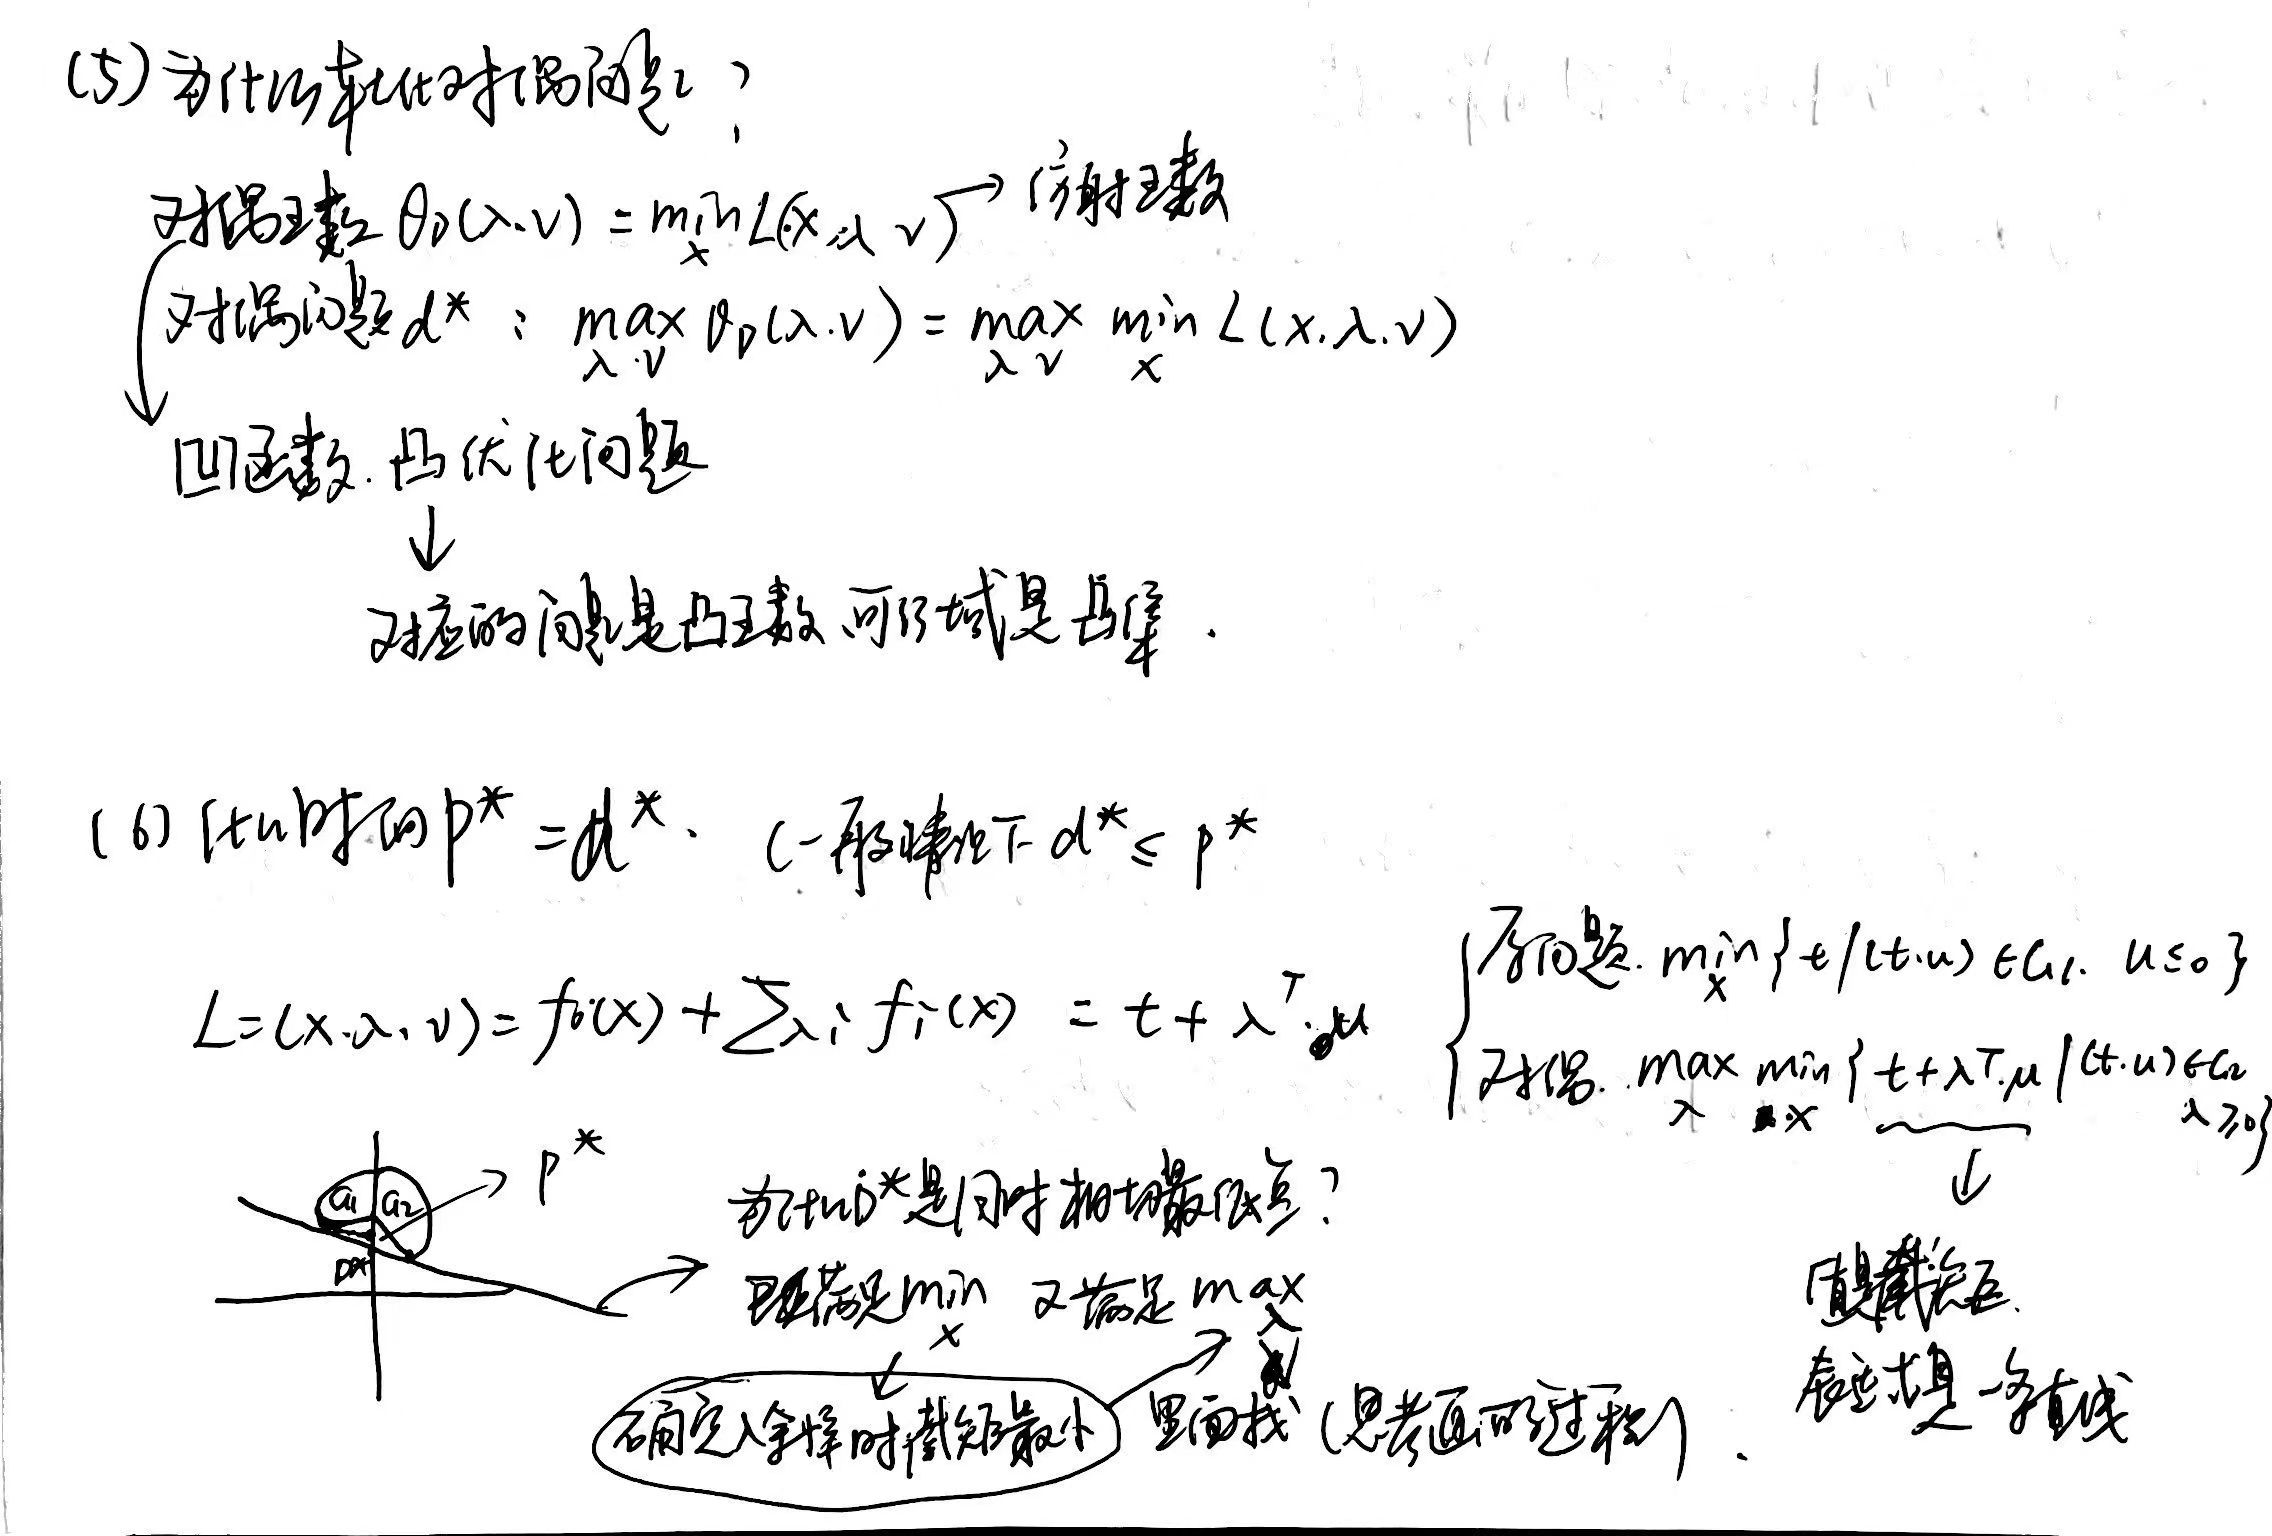 (5) 为什么转化对偶问题？
对偶函数 θ_D(λ.ν) = min_x L(x.λ ν) → 仿射函数
对偶问题 d* : max_{λ.ν} θ_D(λ.ν) = max_{λ ν} min_x L(x.λ.ν)
凹函数. 凸优化问题
↓
对应的问题是凸函数、可行域是凸集.
(6) 什么时候 p* = d*. (一般情况下 d* ≤ p*
L=(x.λ.ν) = f₀(x) + ∑λi fi(x) = t + λᵀ.u
{ 原问题. min_x { t | (t.u) ∈ G₁. u≤0 }
对偶. max_λ min_x { t+λᵀ.μ | (t.u) ∈ G₂ λ≥0}
↓
值是截距.
表达式是一条直线
G₁ G₂ → p*
D*
为什么D*是同时相切最低点？
既满足 min_x 又满足 max_λ
确定λ斜率时截距最小 里面找 (思考画的过程).